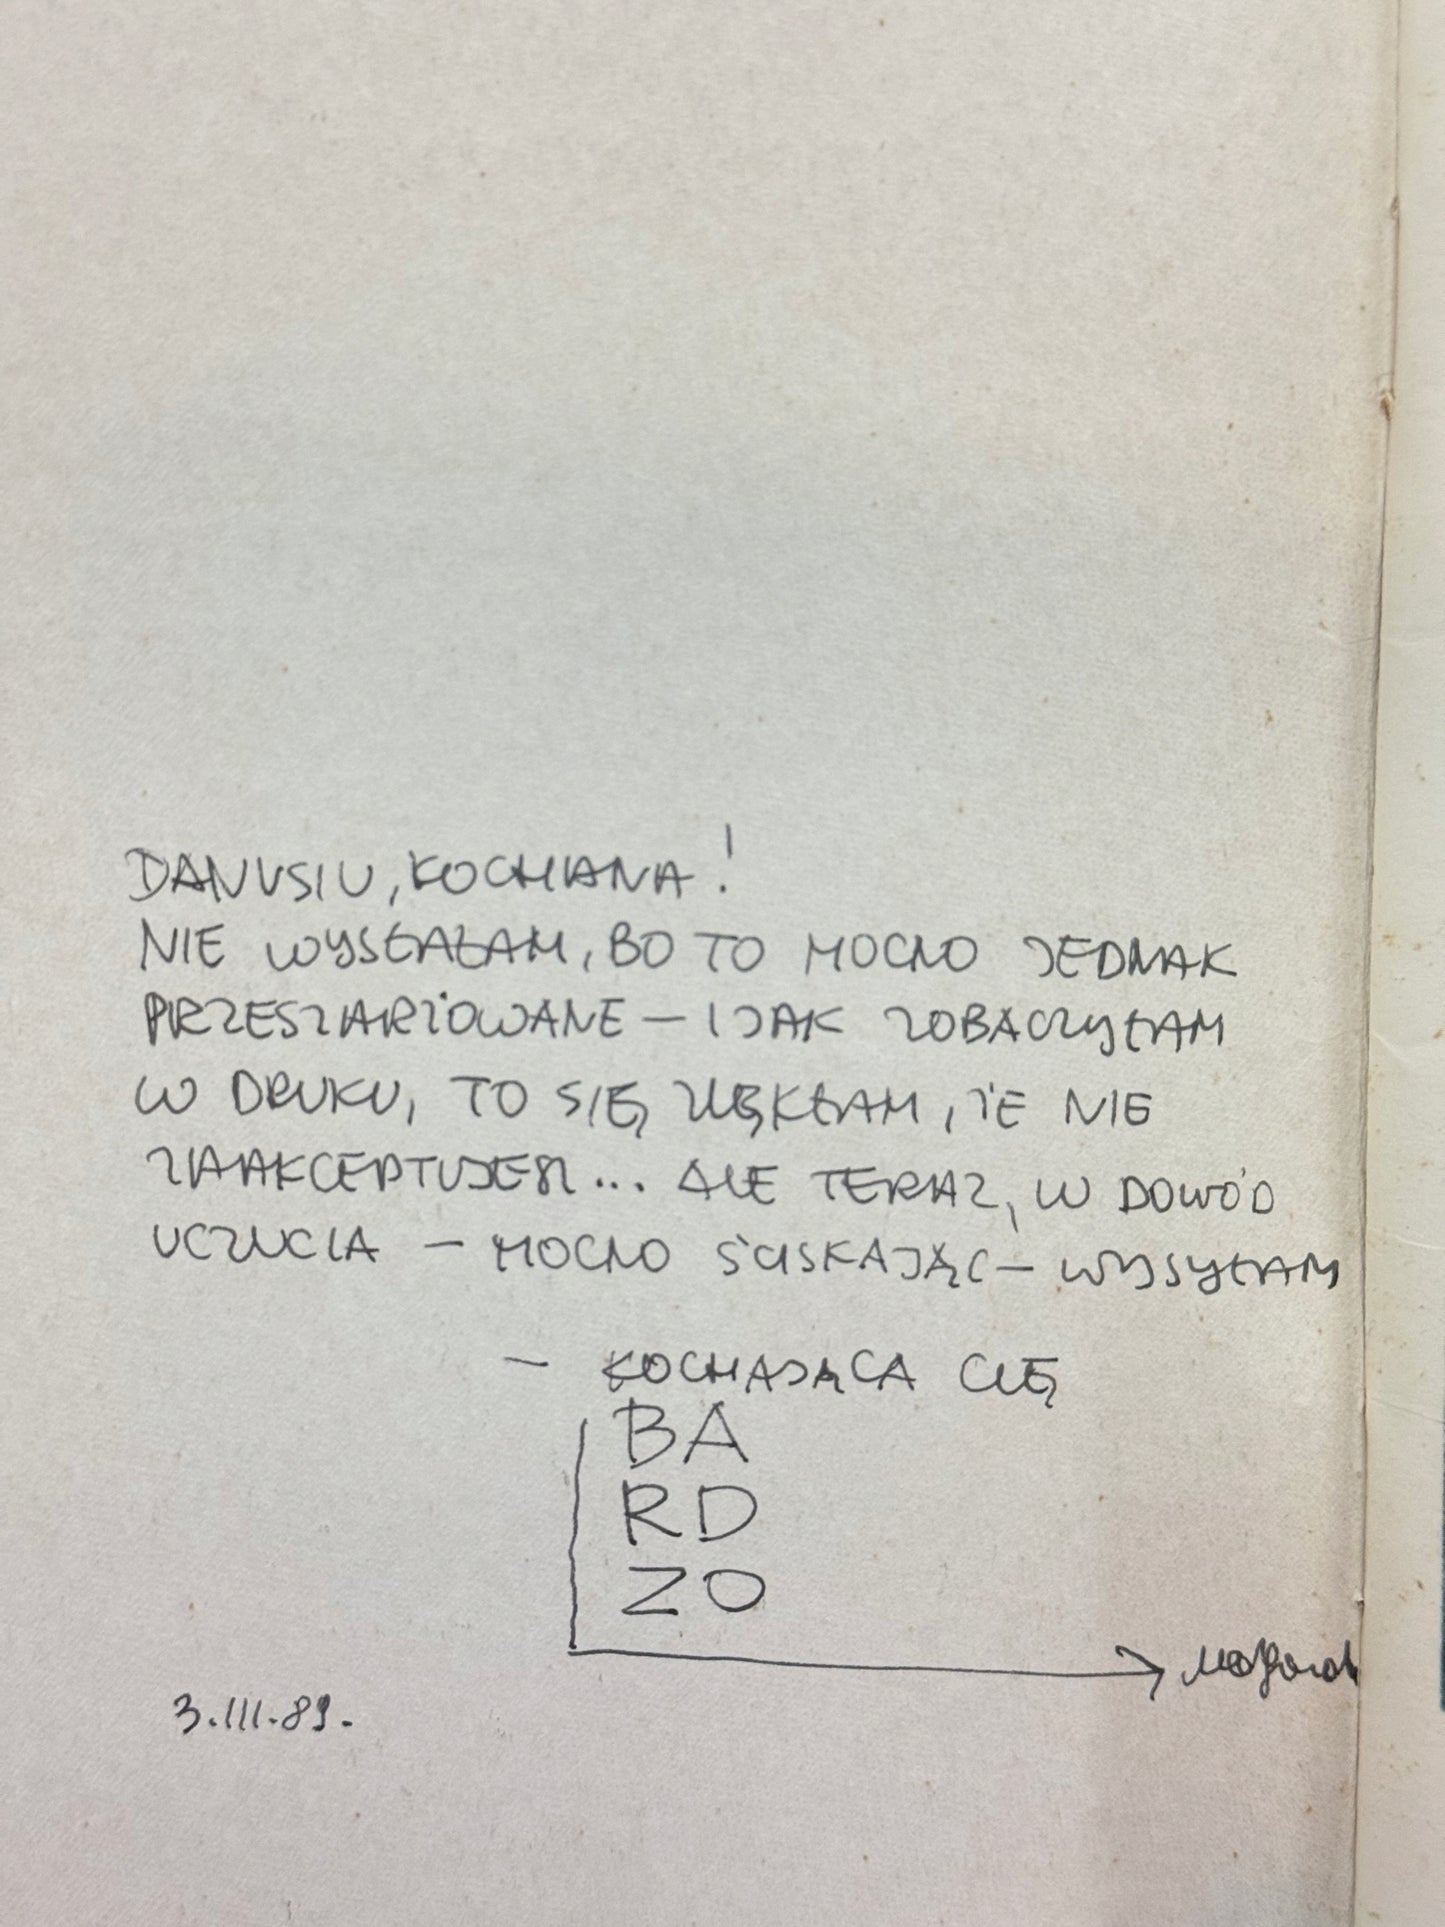 DANUSIU, KOCHANA!
NIE WYSŁAŁAM, BO TO MOCNO JEDNAK
PRZESZARŻOWANE – I JAK ZOBACZYŁAM
W DRUKU, TO SIĘ ZLĘKŁAM, ŻE NIE
ZAAKCEPTUJESZ... ALE TERAZ, W DOWÓD
UCZUCIA – MOCNO ŚCISKAJĄC – WYSYŁAM
– KOCHAJĄCA CIĘ
BA
RD
ZO
3.III.89.